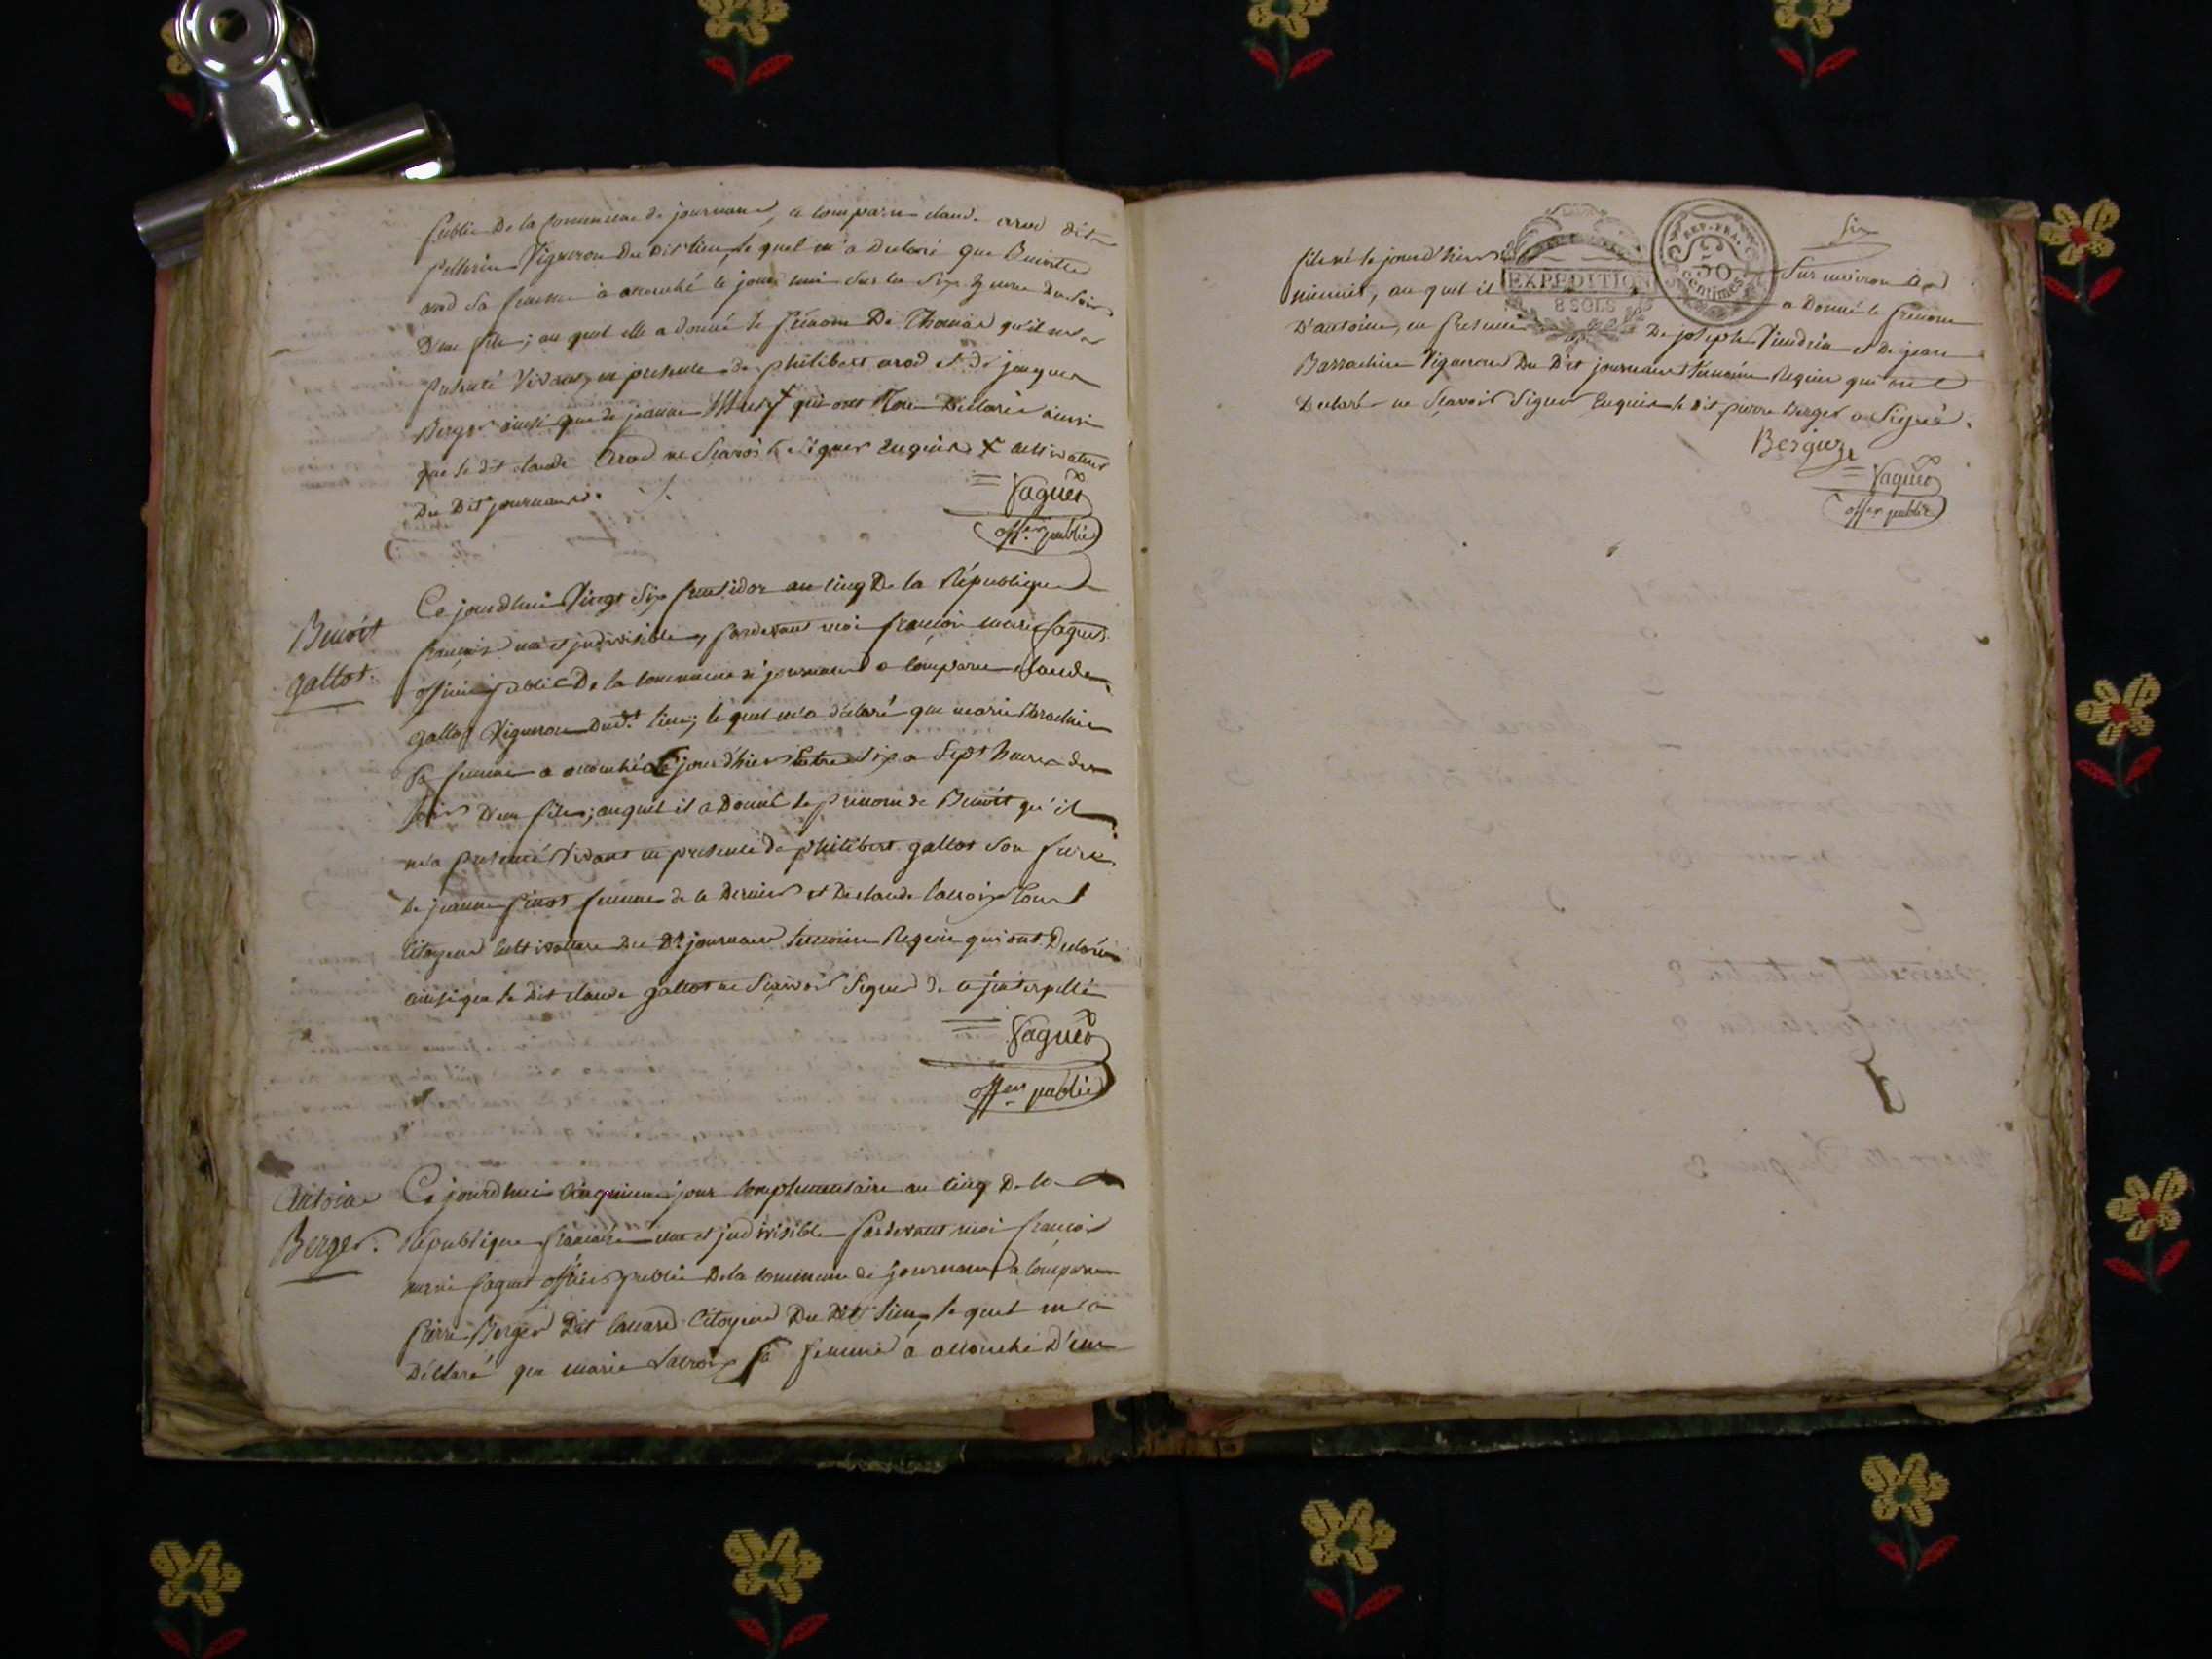 public De la Commune de journans, a comparu claude arod dit
pellerin Vigneron Du Dit lieu, le quel m'a Declaré que Benoitte
arod Sa femme à accouché le jour hui Sur les Six heures Du Soir
D'un fils; au quel elle a donné le prénom De Thomas qu'il m'a
présenté Vivant, en presence de philibert arod et de jacques
Berger ainsi que de jeanne qui ont Tous Declaré ainsi
que le dit claude Arod ne Scavoir Signer Enquis X cultivateur
Du Dit journans.
Fagues
offier public
Benoit
gallot.
Ce jourdhui Vingt Six fructidor an Cinq De la République
française une et jndivisible, pardevant moi françois marie fagues
officier public De la commune de journans a comparu claude
gallot Vigneron Dud.t lieu; lequel m'a déclaré que marie Barachin
Sa femme a accouché le jour d'hier Entre Six a Sept heures du
Soir D'un fils; auquel il a Donné le prenom de Benoit qu'il
m'a presenté Vivant en presence de philibert gallot Son frere
de jeanne pinot femme de ce Dernier et De claude Lacroix Tous
Citoyens Cultivateurs Du Dt journans temoins Requis qui ont Declarés
ainsi que le Dit claude gallot ne Scavoir Signer de ce jnterpellé
Fagues
offier public
Antoine
Berger.
Ce jourdhui Cinquieme jour complementaire an Cinq De la
Republique française une et jndivisible pardevant moi françois
marie fagues officier public De la commune de journans a comparu
pierre Berger Dit Citoyen Du Dit lieu, le quel m'a
Déclaré que marie Lacroix Sa femme a accouché D'un
Six
EXPEDITION
8 SOLS
REP. FRA.
50
Centimes
fils né le jourd'hier Sur environ
minuit, au quel il a Donné le prenom
D'antoine, en presence De joseph et de jean
Barrachin Vignerons Du Dit journans temoins Requis qui ont
Declaré ne Scavoir Signer Enquis le Dit pierre Berger a Signé.
Berger
Fagues
offier public